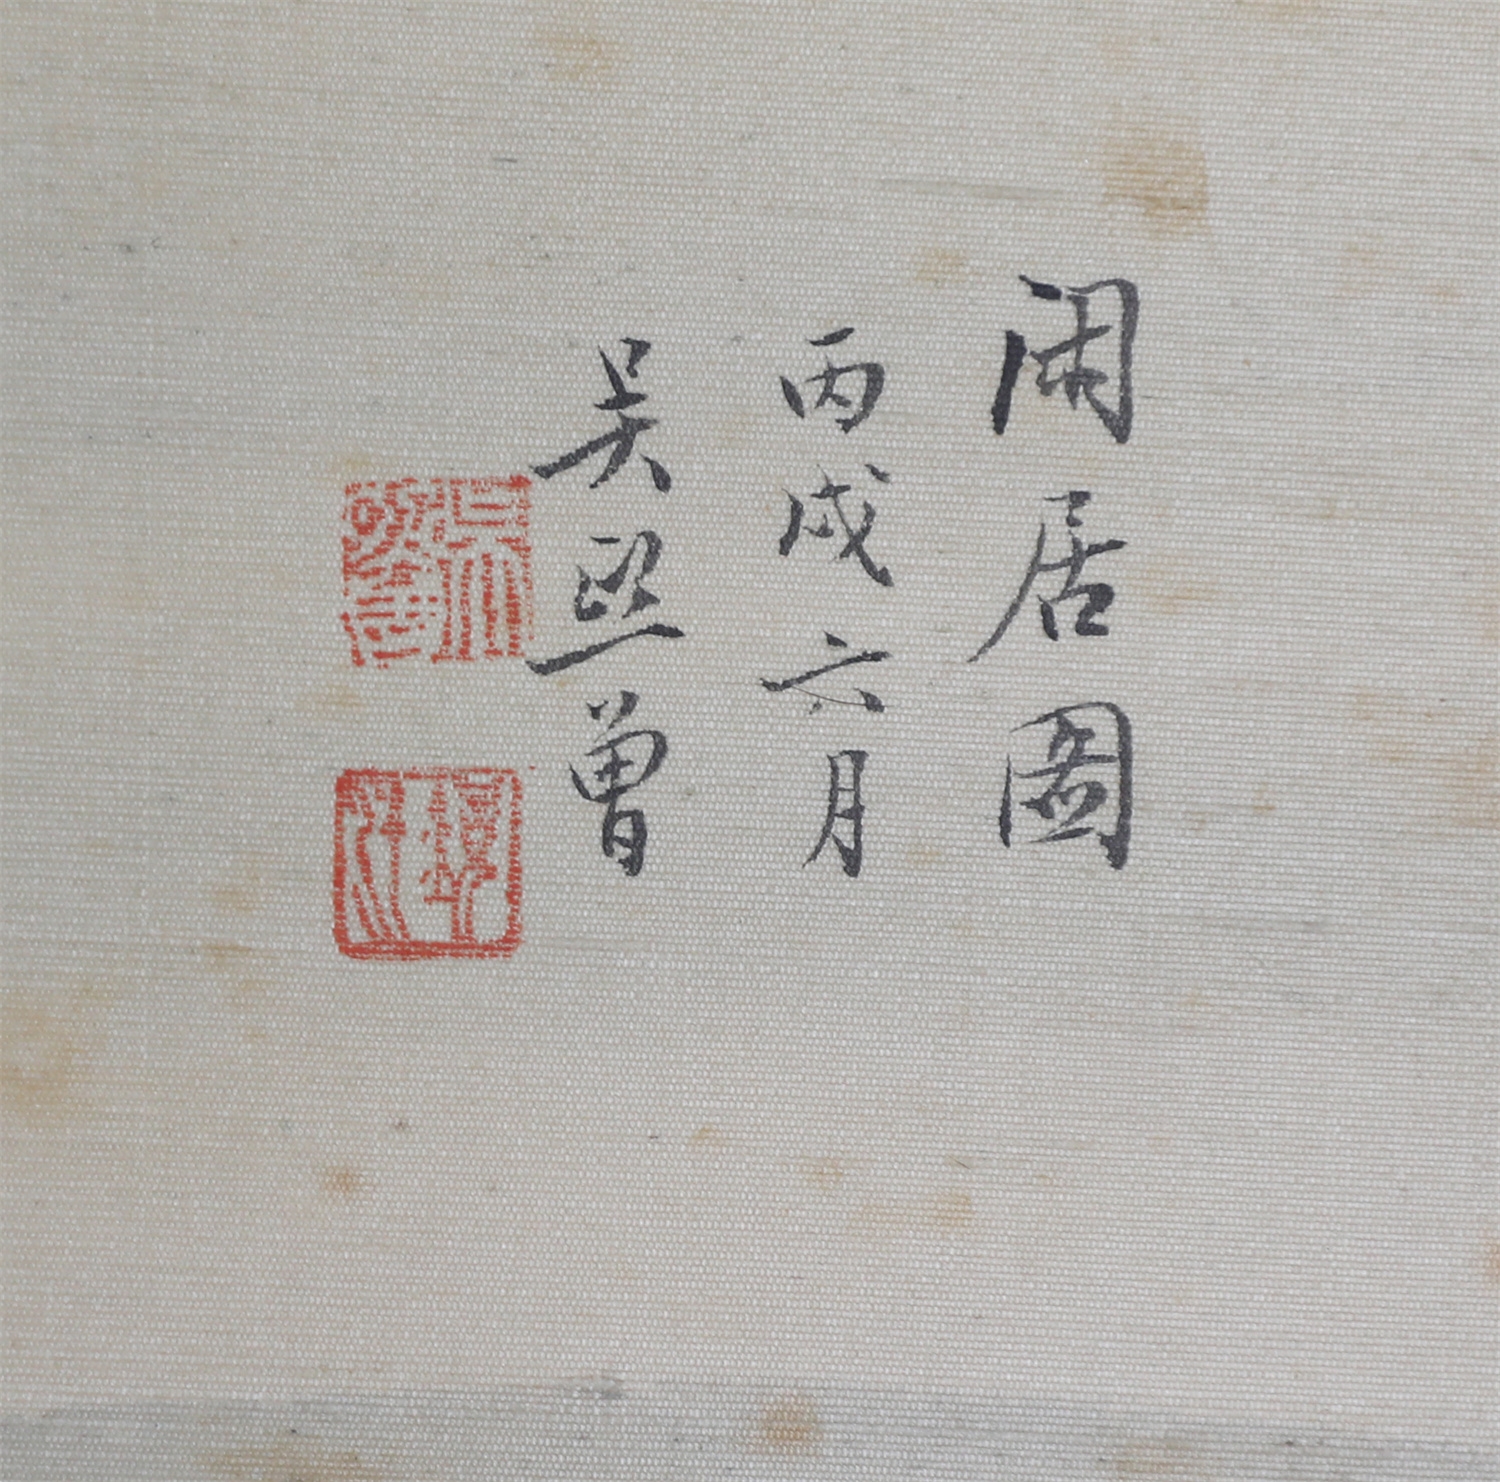 閑居圖
丙戌六月
吳熙曾